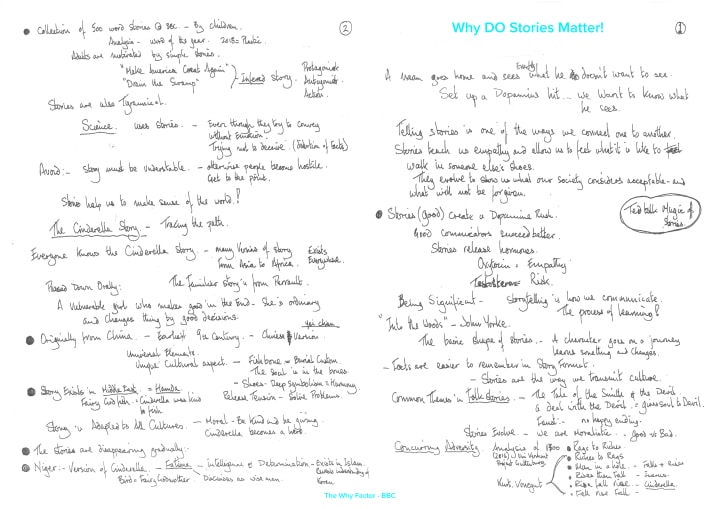 Why DO Stories Matter!
1
Empathy
A man goes home and sees what he doesn't want to see.
Set up a Dopamine hit... we want to know what
he sees.
Telling stories is one of the ways we connect one to another.
Stories teach us empathy and allow us to feel what it is like to
walk in someone else's shoes.
They evolve to show us what our society considers acceptable - and
what will not be forgiven.
Ted talk Magic of
Stories.
Stories (good) create a Dopamine Rush.
Good communicators succeed better.
Stories release hormones.
Oxytocin = Empathy
Testosterone = Risk.
Being Significant - Storytelling is how we communicate.
The process of learning?
"Into the Woods" - John Yorke.
The basic shape of Stories. - A character goes on a journey
learns something and Changes.
- Facts are easier to remember in Story Format.
- Stories are the way we transmit culture.
Common Themes in Folk stories. - The Tale of the Smith & the Devil
a deal with the Devil. = gives soul to Devil.
Faust:- no happy ending.
Stories Evolve - we are Moralistic. - Good vs Bad.
Conquering Adversity. Analysis of 1800
(2016) Uni Vermont
Project Guttenburg
Kurt Vonegut
Rags to Riches
Riches to Rags
Man in a hole. - Falls & Rises
Rises then Fall - Icarus.
Rise fall rise. - Cinderella.
Fall rise Fall -
2
Collection of 500 word Stories @ BBC. - By children.
Analysis - word of the year. 2018 = Plastic.
Adults are motivated by simple stories.
"Make America Great Again"
"Drain the Swamp"
Inferred story.
Protagonist
Antagonist
Action.
Stories are also Tyrannical.
Science uses Stories. - Even though they try to convey
without Emotion.
Trying not to deceive. (distortion of facts)
Avoid:- Story must be understable. - otherwise people become hostile.
Get to the point.
Stories help us to make sense of the world!
The Cinderella Story - Tracing the path.
Everyone Knows the Cinderella Story. - many Versions of Story
from Asia to Africa.
Exists
Everywhere.
Passed Down Orally: The Familiar story is from Perrault.
A Vulnerable girl who makes good in the End - She's ordinary
and Changes things by good decisions.
Yei chan
Originally from China. - Earliest 9th Century. - Chinese Version.
Universal Elements.
Unique Cultural aspect. - Fishbone = Burial Custom.
The Soul is in the bones.
- Shoes - Deep Symbolism = Harmony.
Story Exists in Middle East. = Hamda.
Fairy God fish = Cinderella was kind
to Fish
Release Tension - Solve Problems.
Story is Adapted to All Cultures. - Moral - Be Kind and be giving.
Cinderella becomes a
The Stories are disappearing gradually.
Niger:- Version of Cinderella. - Fatima - Intelligence & Determination - Exists in Islam.
Bird = Fairy Godmother
Koran.
The Why Factor - BBC